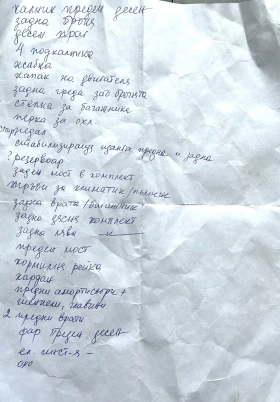 калник преден десен
задна броня
десен праг
4 подкалника
жабка
капак на двигателя
задна греда зад бронята
стелка за багажника
перка за охл.
стъргедал
стабилизираща щанга предна и задна
? резервоар
заден мост в комплект
тръби за климатик / пълнене
задна врата / багажник
задно дясно комплект
задно ляво —"—
преден мост
кормилна рейка
кардан
предни амортисьори +
шенкели, главини
2 предни врати
фар преден десен
ел. инст-я –
око